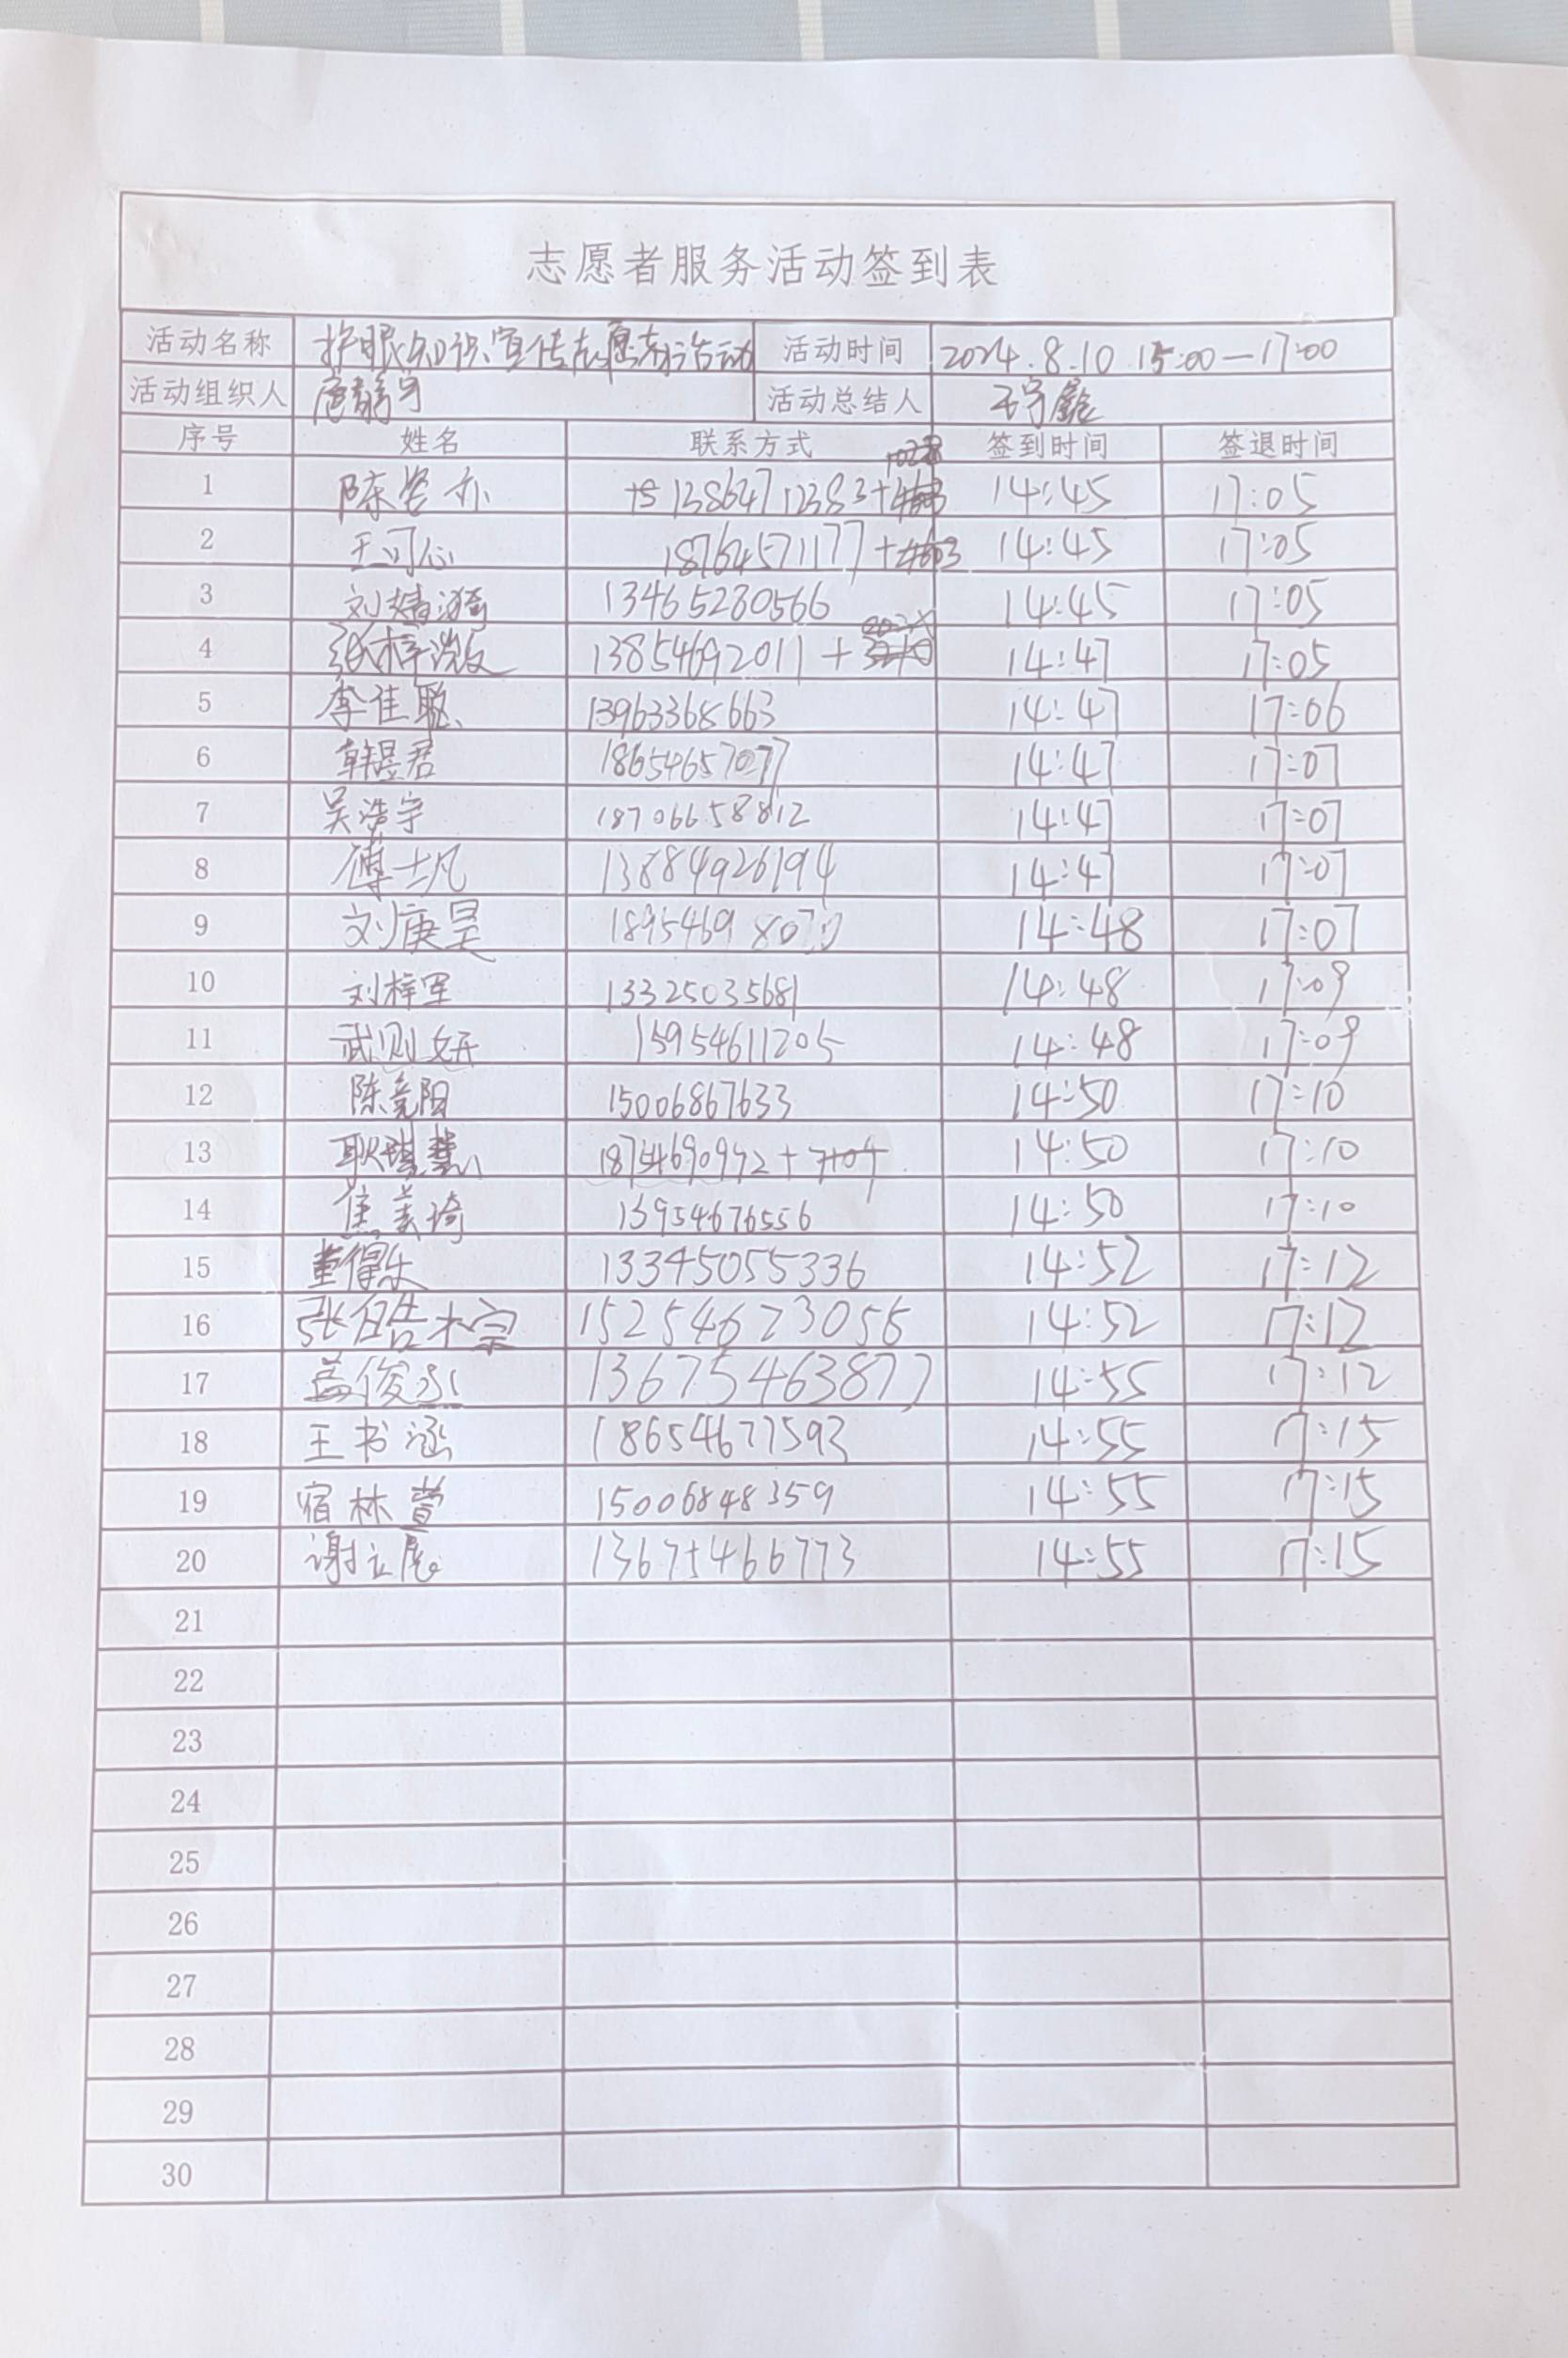 志愿者服务活动签到表
活动名称 护眼知识宣传志愿者活动 活动时间 2024.8.10 15:00—17:00
活动组织人 活动总结人
序号 姓名 联系方式 签到时间 签退时间
1 陈 亦 13864712383+ 14:45 17:05
2 王可心 18764571177+ 14:45 17:05
3 刘婧漪 13465280566 14:45 17:05
4 张梓溦 13854692011+ 14:47 17:05
5 李佳聪 13963368663 14:47 17:06
6 韩昱君 18654657077 14:47 17:07
7 吴浩宇 18706658812 14:47 17:07
8 傅士凡 13884926194 14:47 17:07
9 刘庚昊 14:48 17:07
10 刘梓军 13325035681 14:48 17:09
11 武则妍 15954611205 14:48 17:09
12 陈竞阳 15006867633 14:50 17:10
13 耿琪慧 18754690972+ 14:50 17:10
14 焦美琦 13954676556 14:50 17:10
15 董得乐 13345055336 14:52 17:12
16 张皓棕 15254673056 14:52 17:12
17 盖俊丞 13675463877 14:55 17:12
18 王书涵 18654677593 14:55 17:15
19 宿林萱 15006848359 14:55 17:15
20 谢立晨 13675466773 14:55 17:15
21
22
23
24
25
26
27
28
29
30